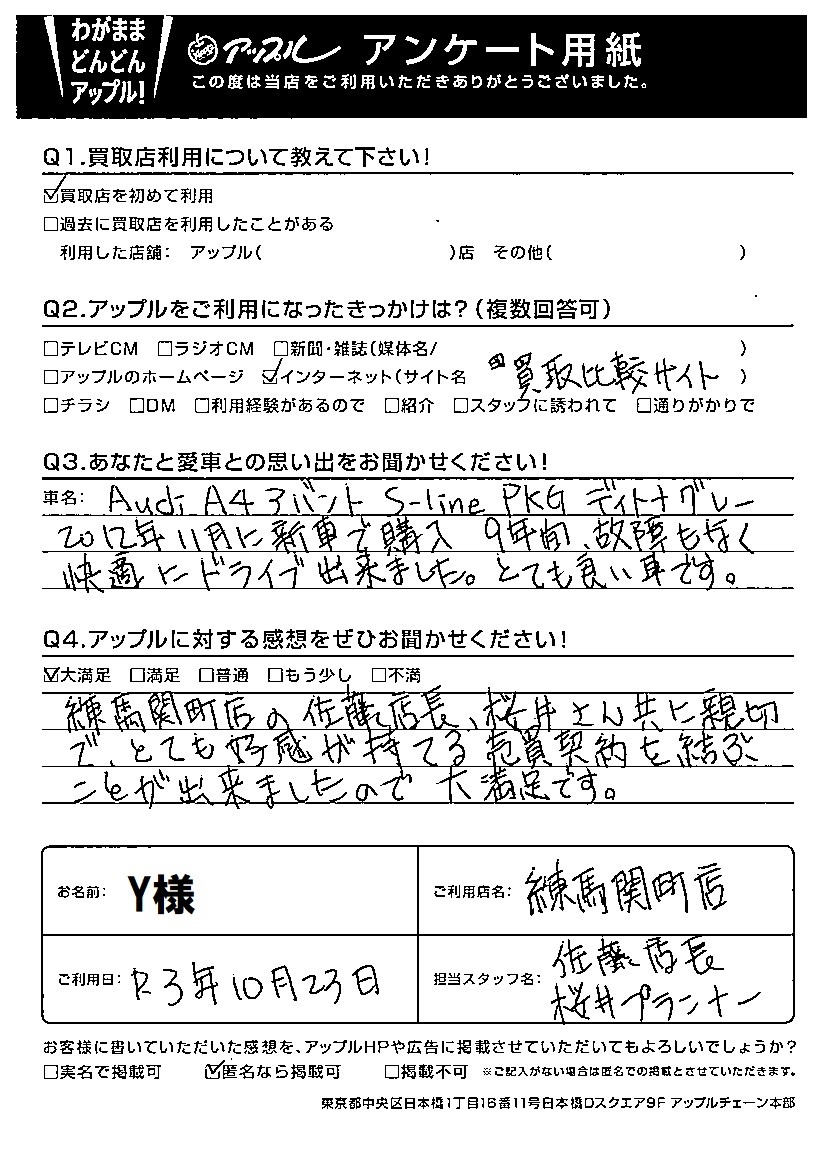 わがまま
どんどん
アップル!
アップル アンケート用紙
この度は当店をご利用いただきありがとうございました。
Q1.買取店利用について教えて下さい!
☑買取店を初めて利用
□過去に買取店を利用したことがある
利用した店舗: アップル( )店 その他( )
Q2.アップルをご利用になったきっかけは?(複数回答可)
□テレビCM □ラジオCM □新聞・雑誌(媒体名/ )
□アップルのホームページ ☑インターネット(サイト名 買取比較サイト )
□チラシ □DM □利用経験があるので □紹介 □スタッフに誘われて □通りがかりで
Q3.あなたと愛車との思い出をお聞かせください!
車名: Audi A4 アバント S-line PKG デイトナグレー
2012年11月に新車で購入 9年間、故障もなく
快適にドライブ出来ました。とても良い車です。
Q4.アップルに対する感想をぜひお聞かせください!
☑大満足 □満足 □普通 □もう少し □不満
練馬関町店の佐藤店長、桜井さん共に親切
で、とても好感が持てる売買契約を結ぶ
ことが出来ましたので大満足です。
お名前: Y様 ご利用店名: 練馬関町店
ご利用日: R3年10月23日 担当スタッフ名: 佐藤店長
桜井プランナー
お客様に書いていただいた感想を、アップルHPや広告に掲載させていただいてもよろしいでしょうか?
□実名で掲載可 ☑匿名なら掲載可 □掲載不可 ※ご記入がない場合は匿名での掲載とさせていただきます。
東京都中央区日本橋1丁目16番11号日本橋Dスクエア9F アップルチェーン本部